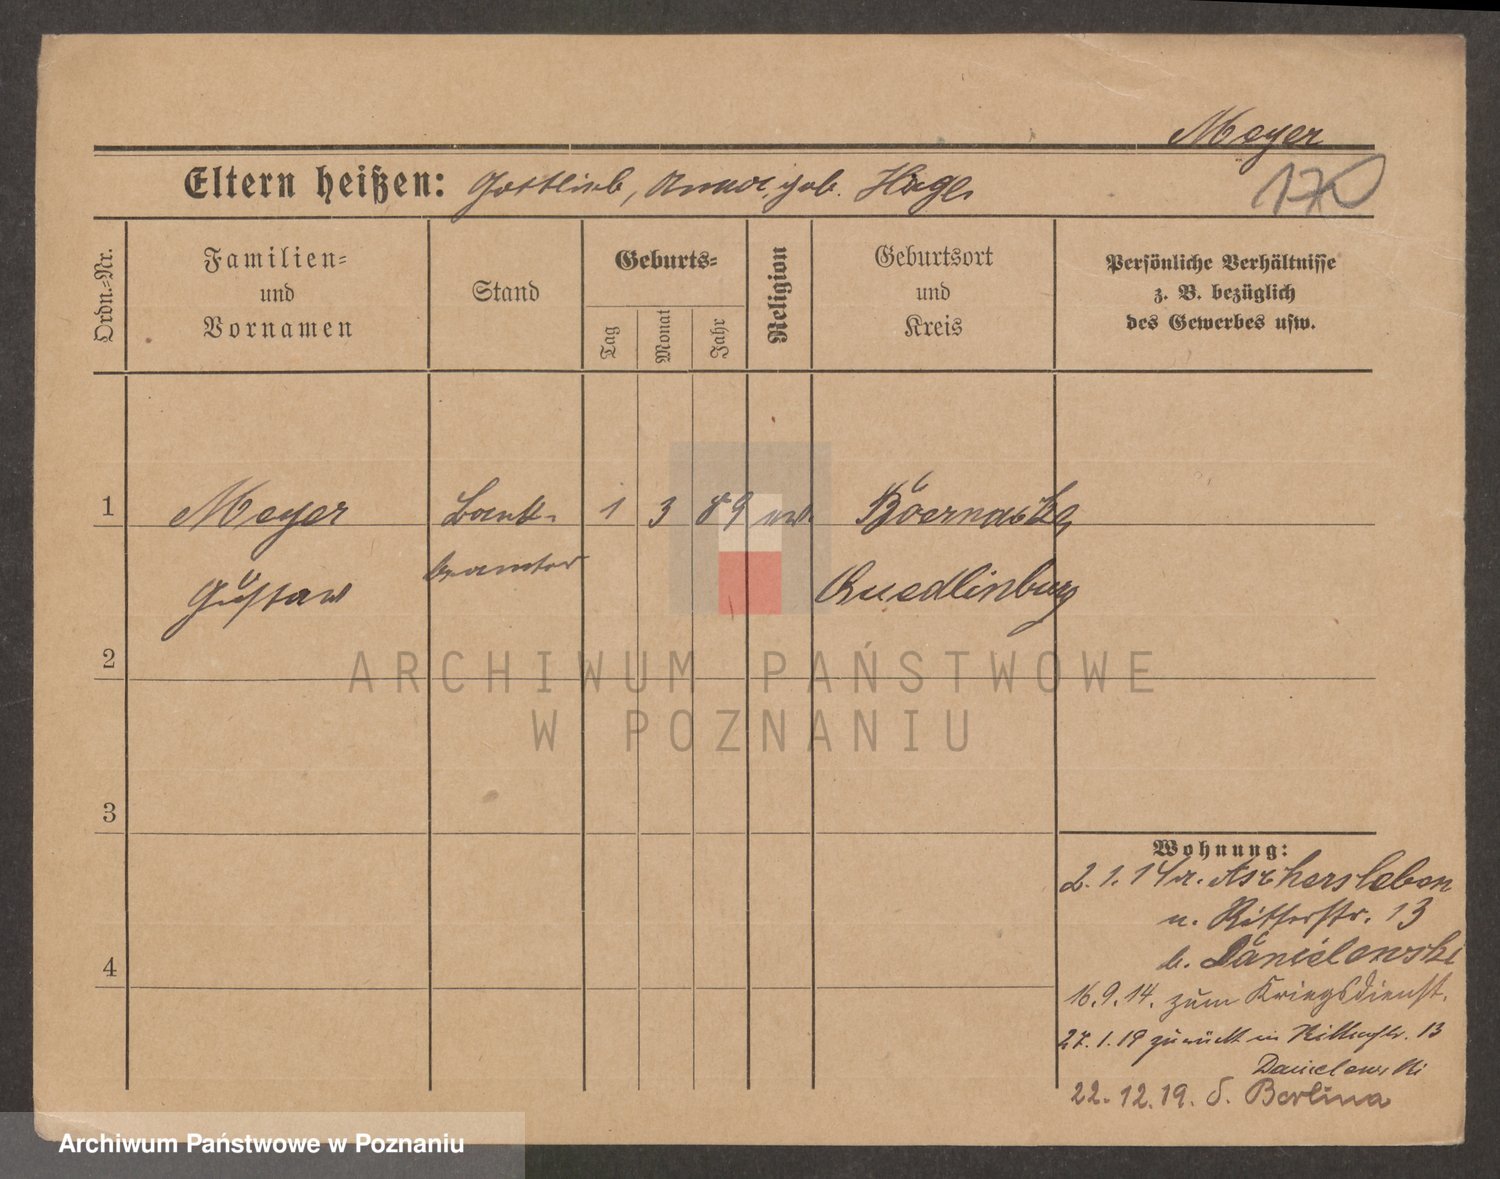 Meyer
Eltern heißen: Gottlieb, Anna, geb. Hage
Ordn.-Nr.
Familien-
und
Vornamen
Stand
Geburts-
Tag
Monat
Jahr
Religion
Geburtsort
und
Kreis
Persönliche Verhältnisse
z. B. bezüglich
des Gewerbes usw.
1 Meyer Bank- 1 3 89 ev.
Gustav beamter Quedlinburg
2
3
4
Wohnung:
2.1.14 Aschersleben
n. Ritterstr. 13
b. Danielewski
16.9.14. zum Kriegsdienst.
27.1.19 zurück in Ritterstr. 13
Danielewski
22.12.19. Berlina
ARCHIWUM PAŃSTWOWE
W POZNANIU
Archiwum Państwowe w Poznaniu